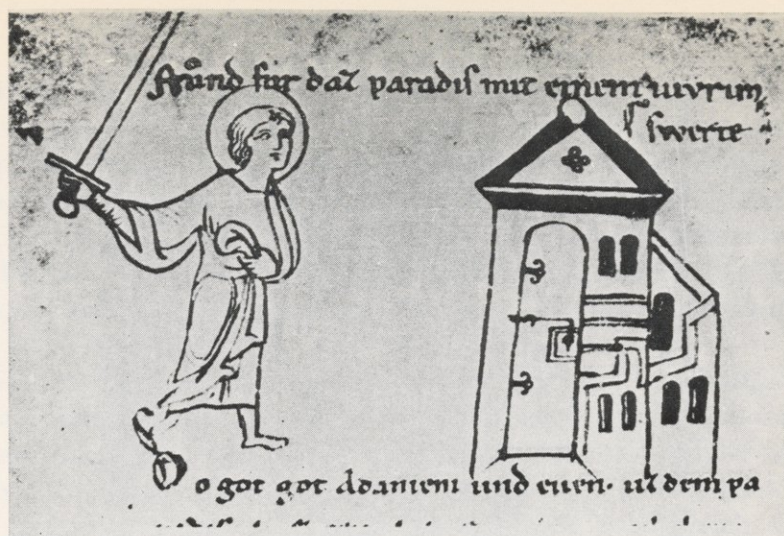 stůnd für daz paradis mit einem uivrim
swerte
Do got got Adamem und euen. uz dem pa